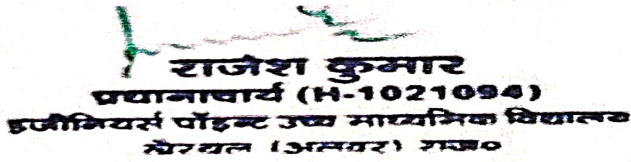 राजेश कुमार
प्रधानाचार्य (H-1021094)
इजीनियर्स पॉइन्ट उच्च माध्यमिक विद्यालय
खैरथल (अलवर) राज०